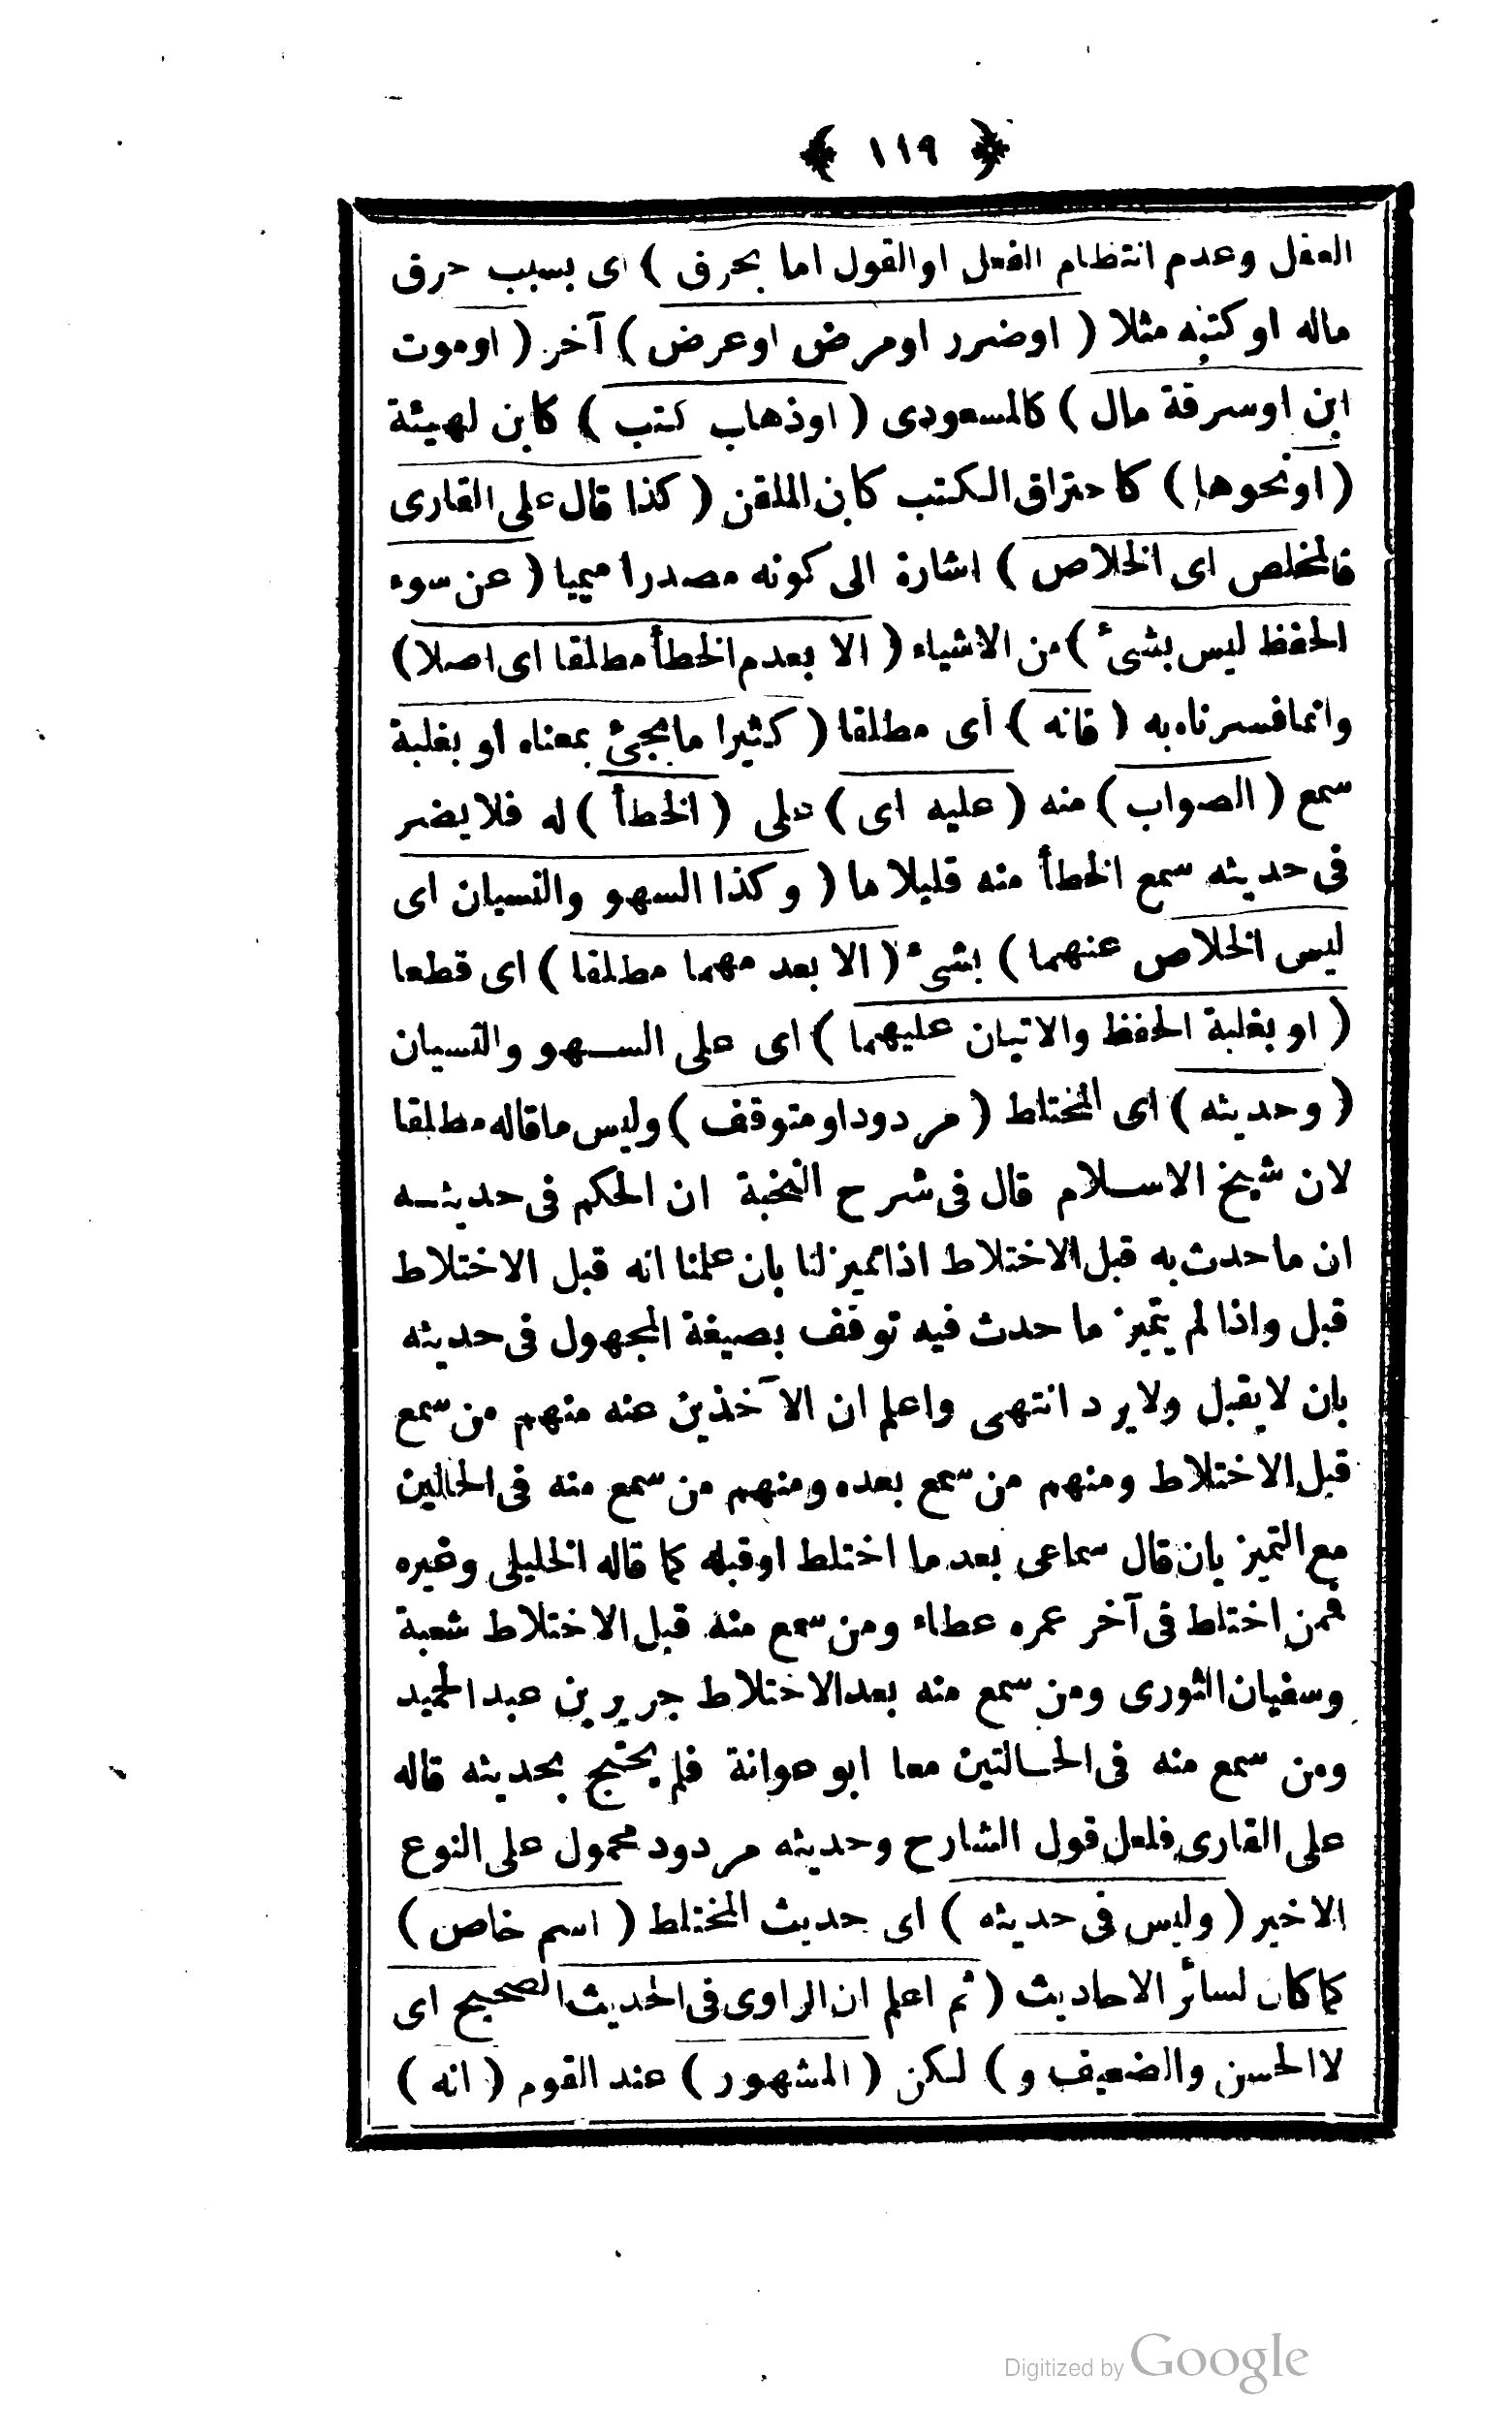 ﴿ ١١٩ ﴾
العقل وعدم انتظام الفعل اوالقول اما بحرق ) اى بسبب حرق
ماله او كتبه مثلا ( اوضرر اومرض اوعرض ) آخر ( اوموت
ابن اوسرقة مال ) كالمسعودى ( اوذهاب كتب ) كابن لهيئة
( اونحوها ) كاحتراق الكتب كابن الملقن ( كذا قال على القارى
فالمخلص اى الخلاص ) اشارة الى كونه مصدرا ميميا ( عن سوء
الحفظ ليس بشئ ) من الاشياء ( الا بعدم الخطأ مطلقا اى اصلا )
وانما فسرناه به ( فانه ) اى مطلقا ( كثيرا ما يجئ بمعناه او بغلبة
سمع ( الصواب ) منه ( عليه اى ) على ( الخطأ ) له فلا يضر
فى حديثه سمع الخطأ منه قليلا ما ( وكذا السهو والنسيان اى
ليس الخلاص عنهما ) بشئ ( الا بعد مهما مطلقا ) اى قطعا
( او بغلبة الحفظ والاتيان عليهما ) اى على السهو والنسيان
( وحديثه ) اى المختلط ( مردود او متوقف ) وليس ماقاله مطلقا
لان شيخ الاسلام قال فى شرح النخبة ان الحكم فى حديثه
ان ما حدث به قبل الاختلاط اذا تميز لنا بان علمنا انه قبل الاختلاط
قبل واذا لم يتميز ما حدث فيه توقف بصيغة المجهول فى حديثه
بان لا يقبل ولا يرد انتهى واعلم ان الآخذين عنه منهم من سمع
قبل الاختلاط ومنهم من سمع بعده ومنهم من سمع منه فى الحالين
مع التميز بان قال سماعى بعد ما اختلط اوقبله كما قاله الخليلى وغيره
فمن اختلط فى آخر عمره عطاء ومن سمع منه قبل الاختلاط شعبة
وسفيان الثورى ومن سمع منه بعد الاختلاط جرير بن عبد الحميد
ومن سمع منه فى الحالتين معا ابو عوانة فلم يحتج بحديثه قاله
على القارى فلعل قول الشارح وحديثه مردود محمول على النوع
الاخير ( وليس فى حديثه ) اى حديث المختلط ( اسم خاص )
كما كان لسائر الاحاديث ( ثم اعلم ان الراوى فى الحديث الصحيح اى
لا الحسن والضعيف و ) لكن ( المشهور ) عند القوم ( انه )
Digitized by Google